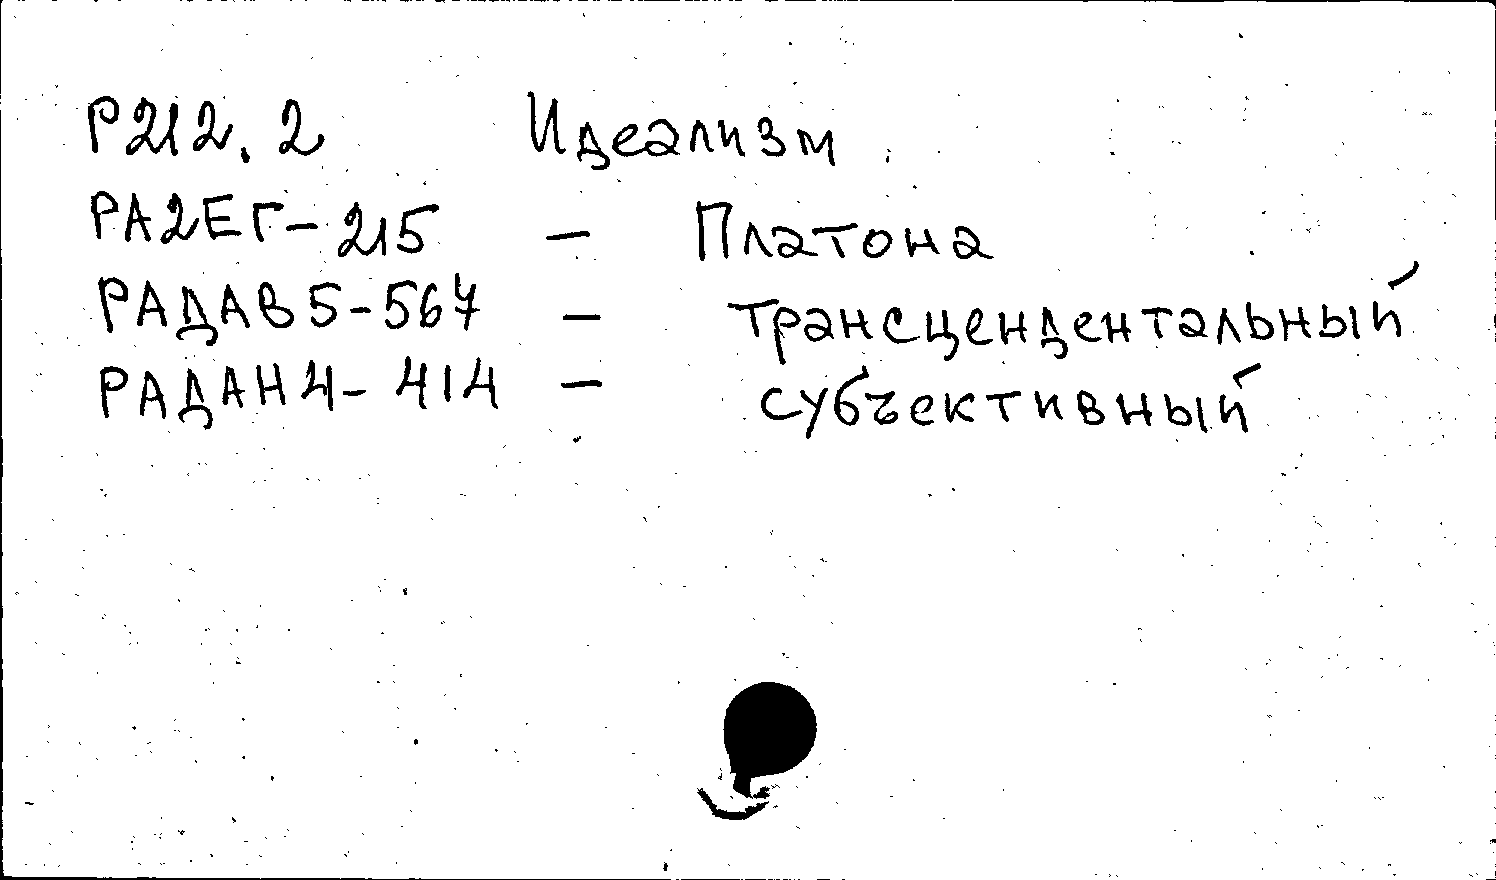 Р212.2 Идеализм
РА2ЕГ-215 — Платона
РАДАВ5-567 — трансцендентальный
РАДАН4-414 — субъективный